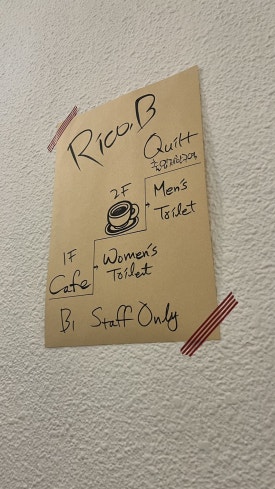 Rico.B
Quilt
2F
Men's
Toilet
1F
Cafe
Women's
Toilet
B1 Staff Only